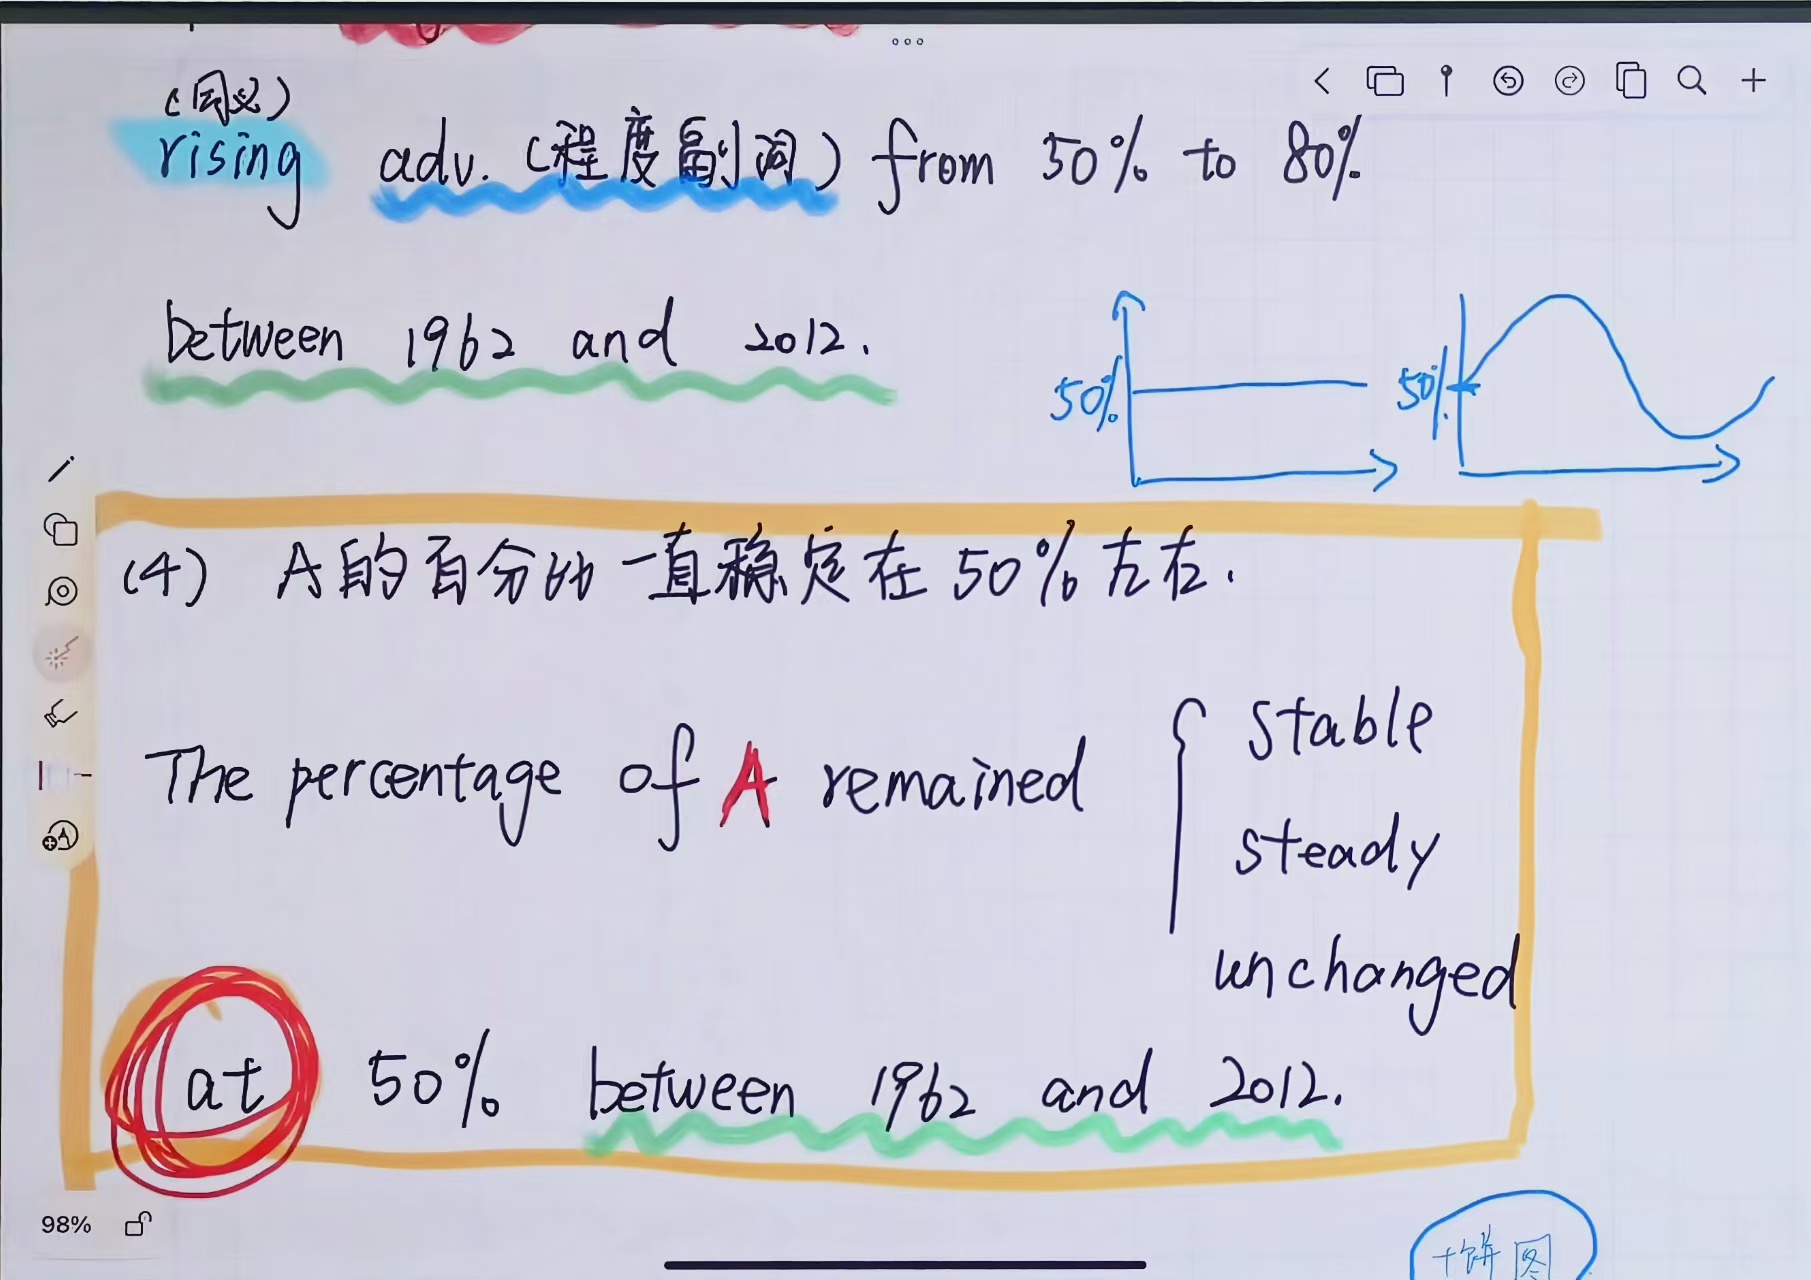 (同义)
rising adv. (程度副词) from 50% to 80%
between 1962 and 2012.
50%
50%
(4) A的百分比一直稳定在50%左右.
The percentage of A remained
stable
steady
unchanged
at 50% between 1962 and 2012.
98%
饼图